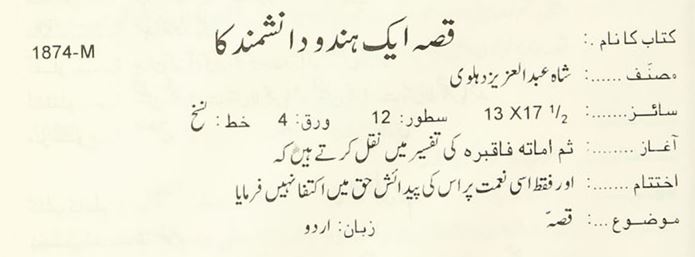 کتاب کا نام .: قصہ ایک ہندو دانشمند کا 1874-M
مصنف ......: شاہ عبدالعزیز دہلوی
سائز......: 13 X17 1/2 سطور: 12 ورق: 4 خط: نسخ
آغاز .......: ثم اماته فاقبره کی تفسیر میں نقل کرتے ہیں کہ
اختتام ......: اور فقط اسی نعمت پر اس کی پیدائش حق میں اکتفا نہیں فرمایا
موضوع ...: قصّہ زبان: اردو